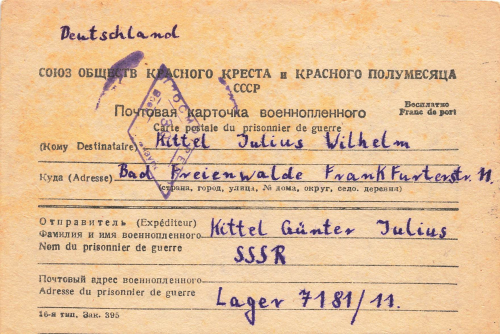 Deutschland
СОЮЗ ОБЩЕСТВ КРАСНОГО КРЕСТА и КРАСНОГО ПОЛУМЕСЯЦА
СССР
Почтовая карточка военнопленного
Бесплатно
Franc de port
Carte postale du prisonnier de guerre
(Кому Destinataire) Kittel Julius Wilhelm
Куда (Adresse) Bad Freienwalde Frankfurterstr. 11
(страна, город, улица, № дома, округ, село, деревня)
Отправитель (Expéditeur)
Фамилия и имя военнопленного Kittel Günter Julius
Nom du prisonnier de guerre SSSR
Почтовый адрес военнопленного
Adresse du prisonnier de guerre Lager 7181/11.
16-я тип. Зак. 395